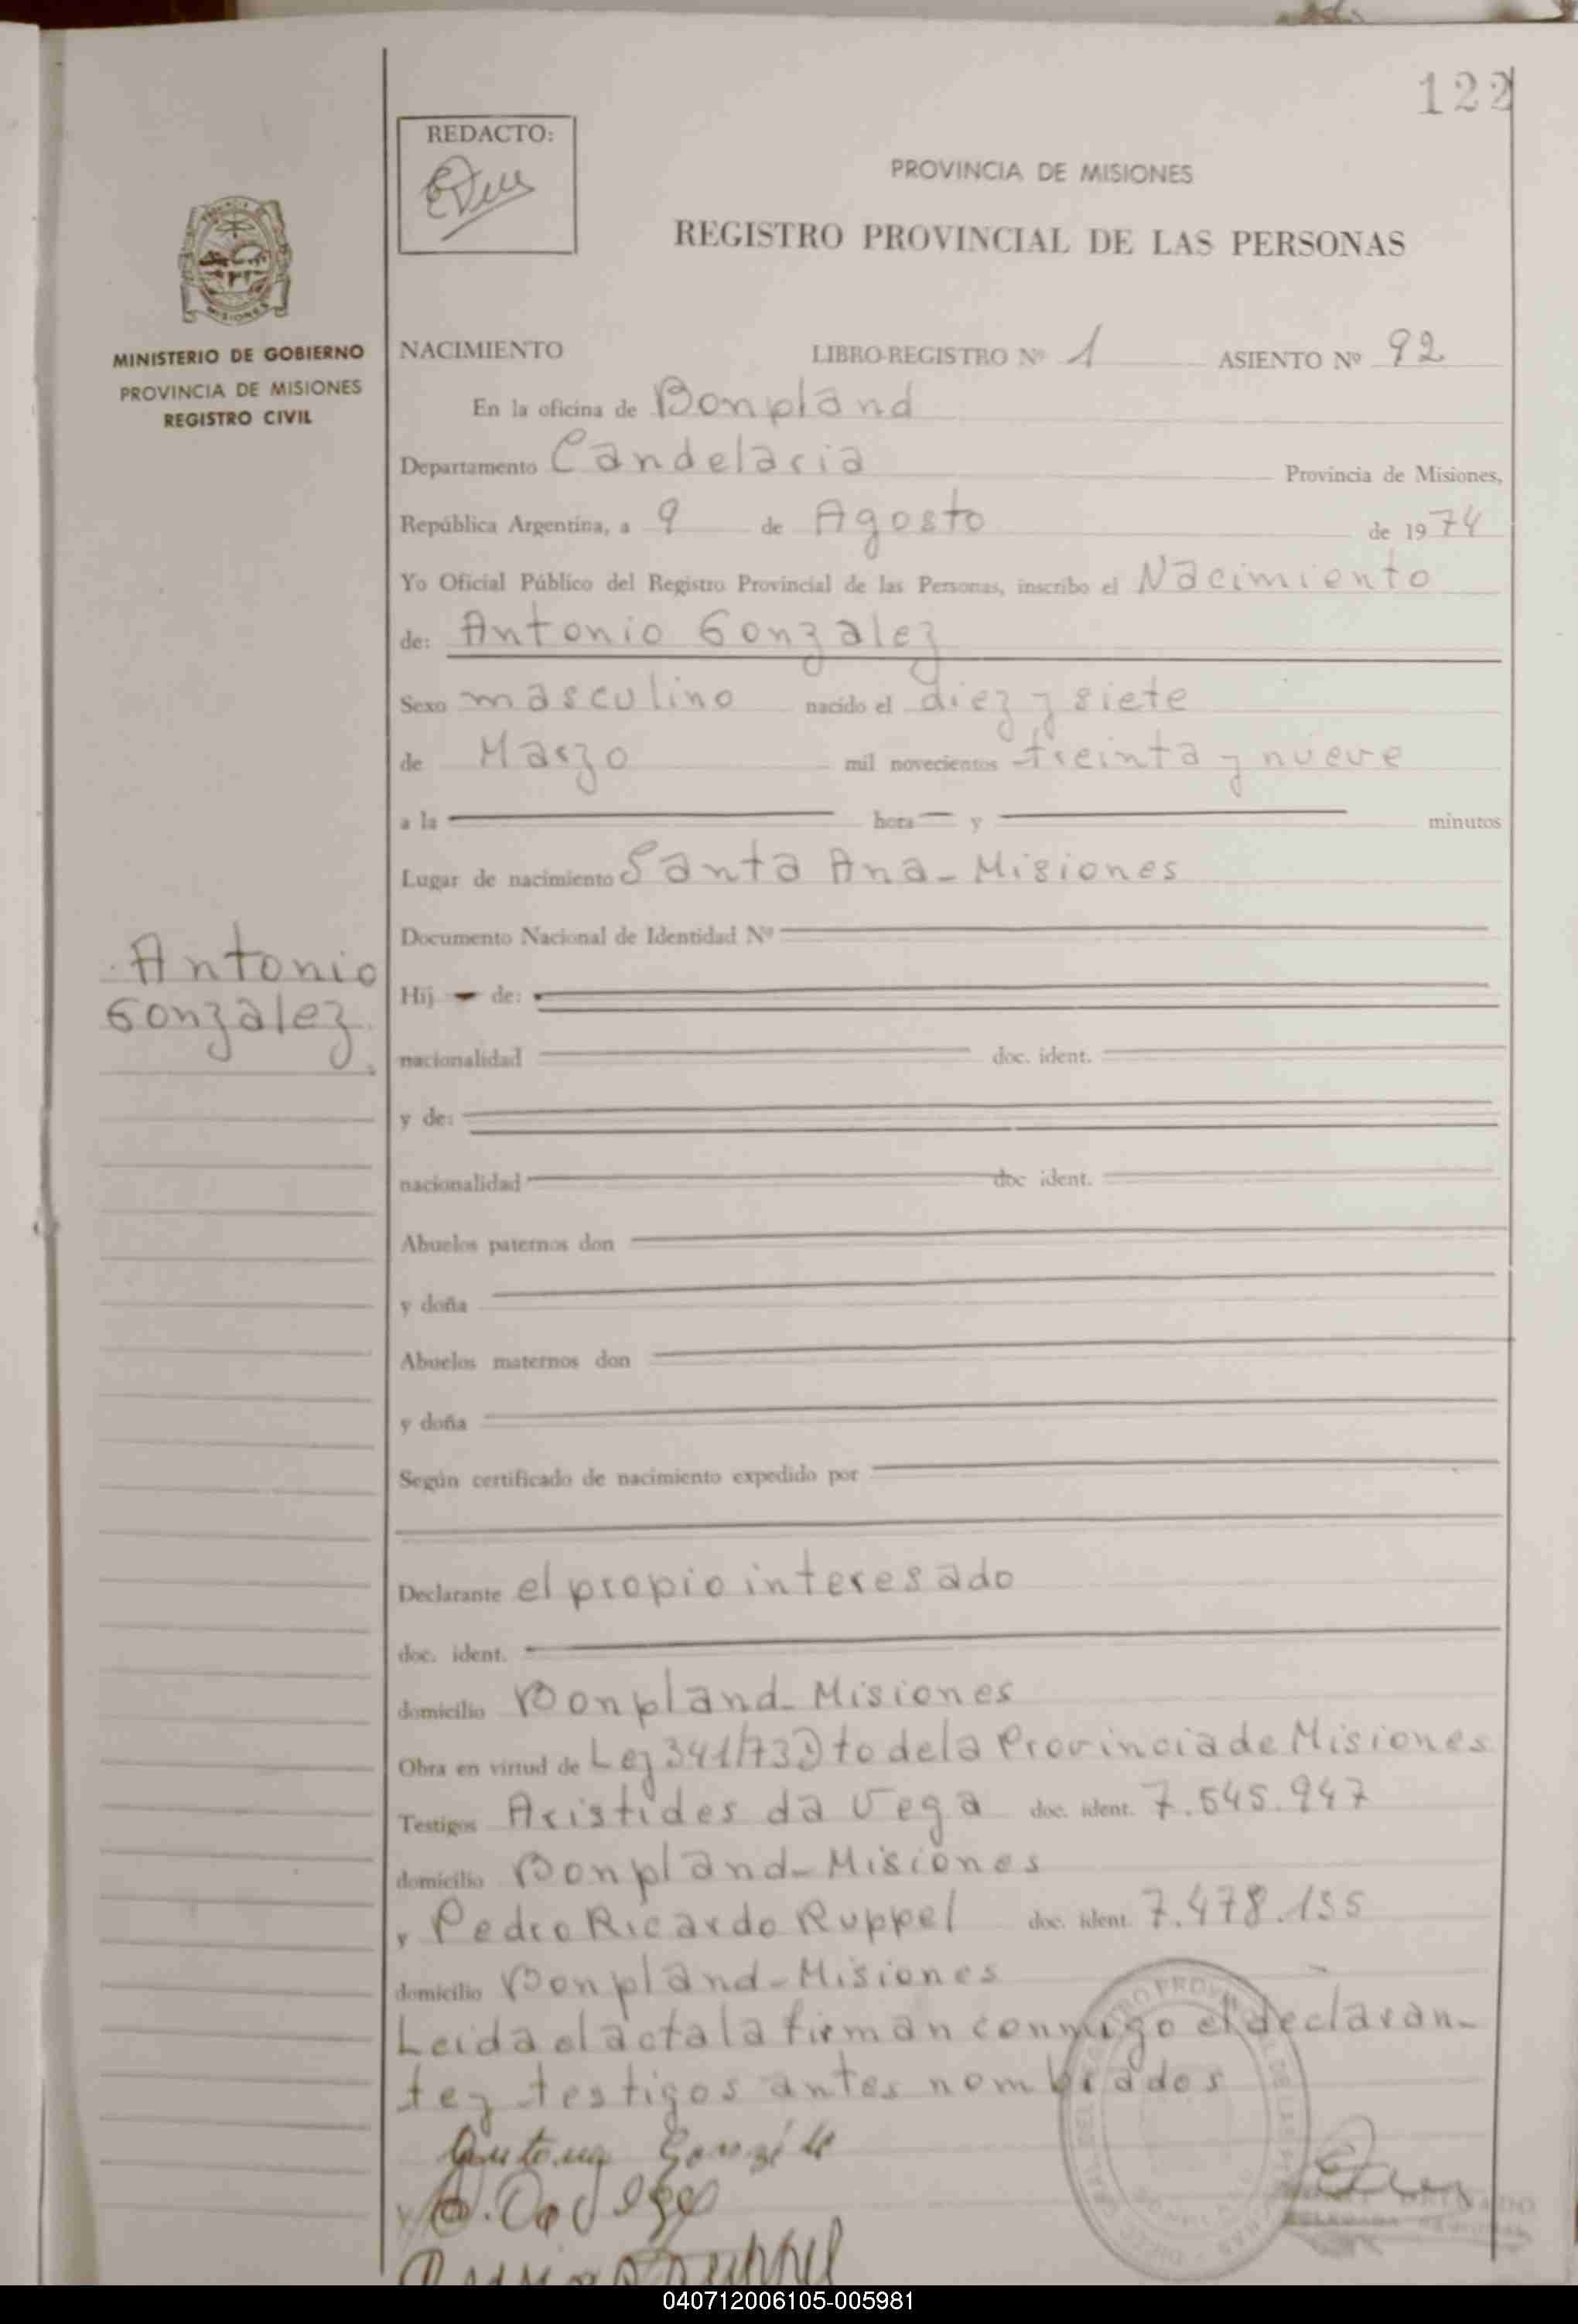 122
REDACTO:
PROVINCIA DE MISIONES
REGISTRO PROVINCIAL DE LAS PERSONAS
MISIONES
MINISTERIO DE GOBIERNO
PROVINCIA DE MISIONES
REGISTRO CIVIL
NACIMIENTO LIBRO-REGISTRO Nº 1 ASIENTO Nº 92
En la oficina de Bonpland
Departamento Candelaria Provincia de Misiones,
República Argentina, a 9 de Agosto de 1974
Yo Oficial Público del Registro Provincial de las Personas, inscribo el Nacimiento
de: Antonio Gonzalez
Sexo masculino nacido el diez y siete
de Marzo mil novecientos treinta y nueve
a la hora y minutos
Lugar de nacimiento Santa Ana - Misiones
Documento Nacional de Identidad Nº
Antonio
Gonzalez.
Hij - de:
nacionalidad doc. ident.
y de:
nacionalidad doc ident.
Abuelos paternos don
y doña
Abuelos maternos don
y doña
Según certificado de nacimiento expedido por
Declarante el propio interesado
doc. ident.
domicilio Bonpland - Misiones
Obra en virtud de Ley 341/73 Dto de la Provincia de Misiones
Testigos Aristides da Vega doc. ident. 7.545.947
domicilio Bonpland - Misiones
y Pedro Ricardo Ruppel doc. ident. 7.478.155
domicilio Bonpland - Misiones
Leida el acta la firman conmigo el declaran-
te y testigos antes nombrados
Antonio Gonzale
040712006105-005981